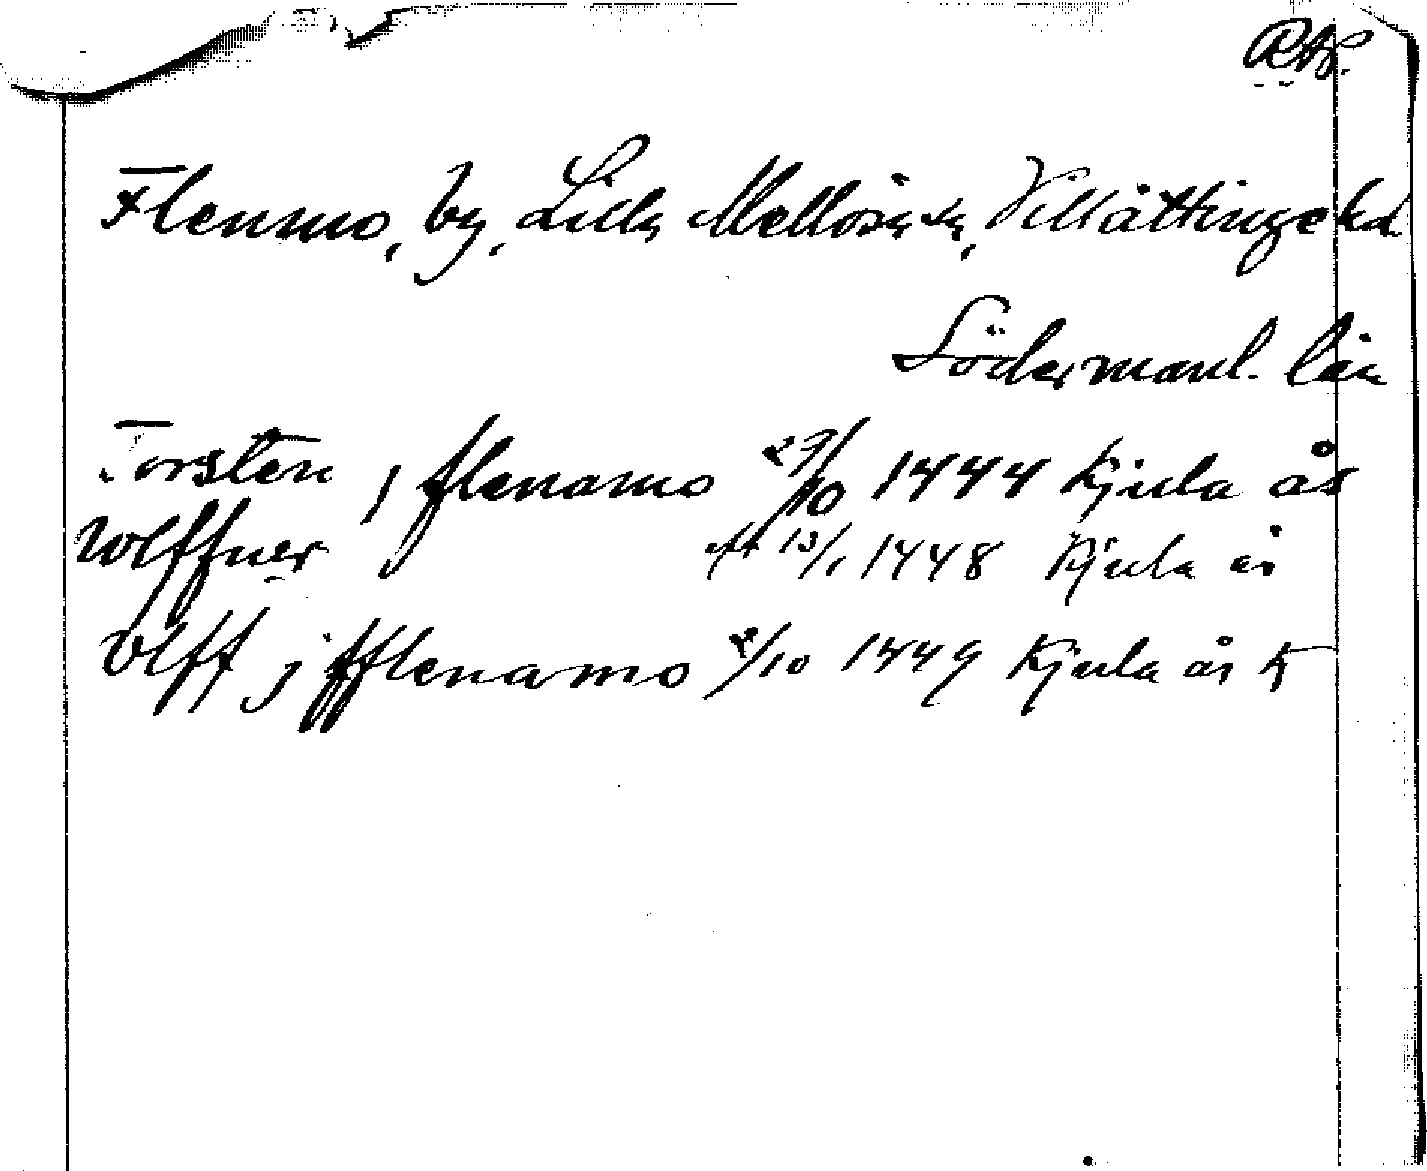 Flenmo, by, Lilla Mellösa sn, Villåttinge hd
Södermanl. län
Torsten j flenamo 29/10 1444 Kjula ås
Wlffuer 13/1 1448 Kjula ås
Vlff j fflenamo 2/10 1449 Kjula ås